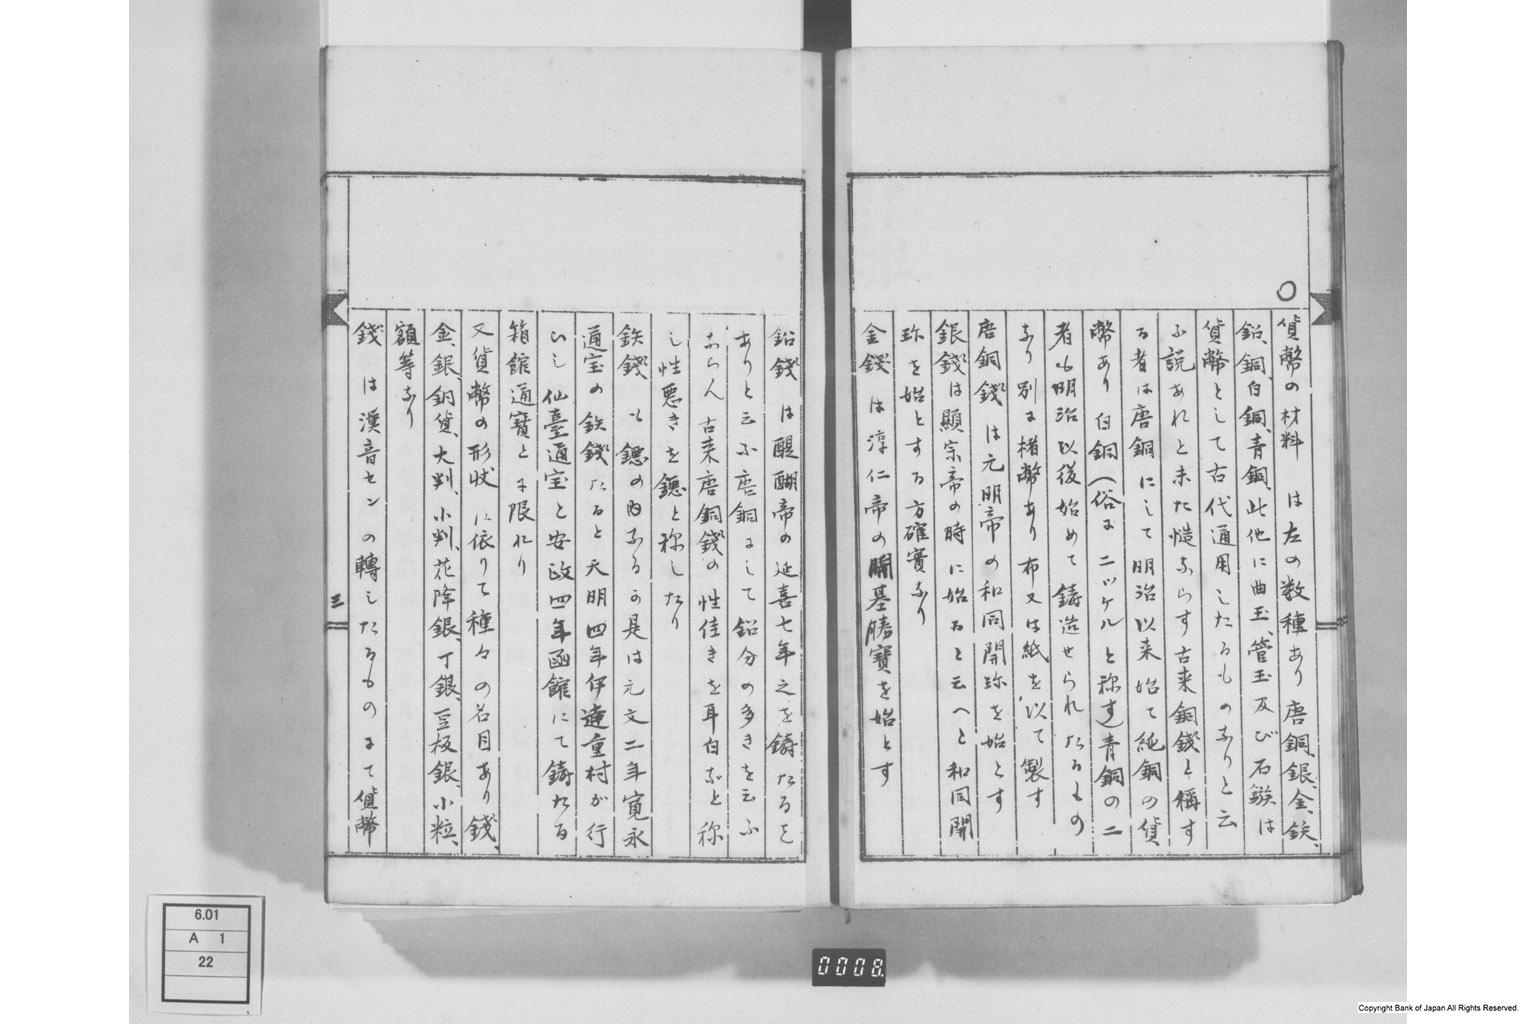 ○
貨幣の材料　は左の数種あり唐銅、銀、金、鉄、
鉛、銅、白銅、青銅、此他に曲玉、管玉及び石鏃は
貨幣として古代通用したるものなりと云
ふ説あれと未た慥ならす古来銅錢と稱す
る者は唐銅にして明治以来始て純銅の貨
幣あり白銅（俗にニッケルと称す）青銅の二
者も明治以後始めて鋳造せられたるもの
なり別に楮幣あり布又は紙を以て製す
唐銅錢　は元明帝の和同開珎を始とす
銀錢は顯宗帝の時に始ると云へと和同開
珎を始とする方確實なり
金錢　は淳仁帝の開基勝寶を始とす
鉛錢　は醍醐帝の延喜七年之を鋳たると
ありと云ふ唐銅にして鉛分の多きを云ふ
ならん古来唐銅錢の性佳きを耳白などと称
し性悪きを鐚と称したり
鉄錢　も鐚の内なるか是は元文二年寛永
通宝の鉄錢たると天明四年伊達重村が行
ひし仙臺通宝と安政四年函館にて鋳たる
箱館通寳とに限れり
又貨幣の形状　に依りて種々の名目あり錢、
金、銀、銅貨、大判、小判、花降銀、丁銀、豆板銀、小粒、
額等なり
錢　は漢音センの轉したるものにて貨幣
三
6.01
A 1
22
0008.
Copyright Bank of Japan All Rights Reserved.